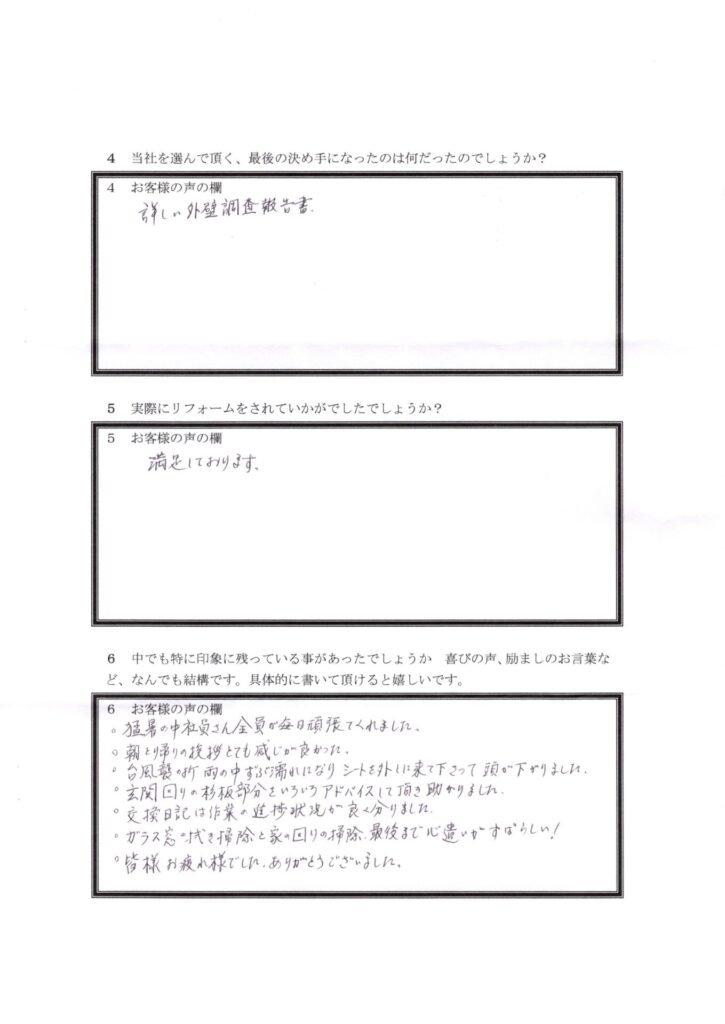 4 当社を選んで頂く、最後の決め手になったのは何だったのでしょうか？
4 お客様の声の欄
詳しい外壁調査報告書.
5 実際にリフォームをされていかがでしたでしょうか？
5 お客様の声の欄
満足しております。
6 中でも特に印象に残っている事があったでしょうか 喜びの声、励ましのお言葉な
ど、なんでも結構です。具体的に書いて頂けると嬉しいです。
6 お客様の声の欄
○猛暑の中社員さん全員が毎日頑張てくれました。
○朝と帰りの挨拶とても感じが良かった。
○台風襲の折雨の中ずぶ濡れになりシートを外しに来て下さって頭が下がりました.
○玄関回りの杉板部分をいろいろアドバイスして頂き助かりました。
○交換日記は作業の進捗状況が良く分りました.
○ガラス窓の拭き掃除と家の回りの掃除.最後まで心遣いがすばらしい！
○皆様お疲れ様でした.ありがとうございました。